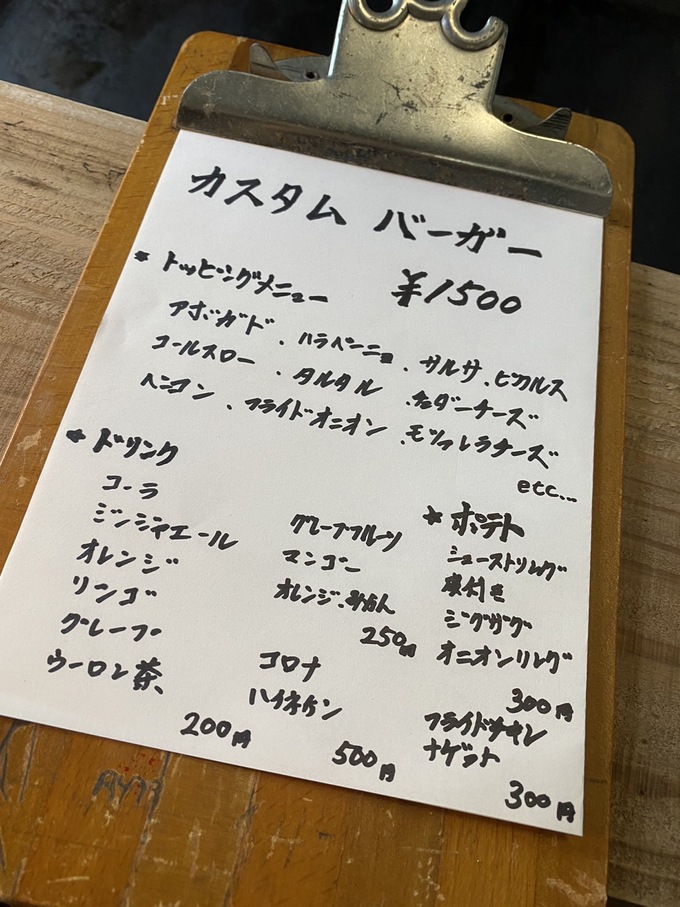 カスタム バーガー
¥1500
* トッピングメニュー
アボガド、ハラペーニョ、サルサ、ピクルス
コールスロー、タルタル、チェダーチーズ
ベーコン、フライドオニオン、モッツァレラチーズ
etc...
* ドリンク
コーラ
ジンジャエール
オレンジ
リンゴ
グレープ
ウーロン茶
200円
グレープフルーツ
マンゴー
オレンジ・みかん
250円
コロナ
ハイネケン
500円
* ポテト
シューストリング
皮付き
ジグザグ
オニオンリング
300円
フライドチキン
ナゲット
300円